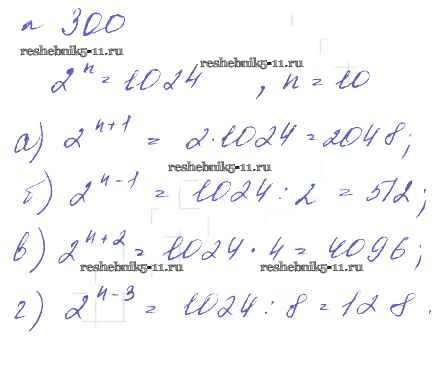 № 300
reshebnik5-11.ru
reshebnik5-11.ru
2ⁿ = 1024, n = 10
а) 2ⁿ⁺¹ = 2·1024 = 2048;
reshebnik5-11.ru
б) 2ⁿ⁻¹ = 1024 : 2 = 512;
в) 2ⁿ⁺² = 1024 · 4 = 4096;
reshebnik5-11.ru reshebnik5-11.ru
г) 2ⁿ⁻³ = 1024 : 8 = 128.